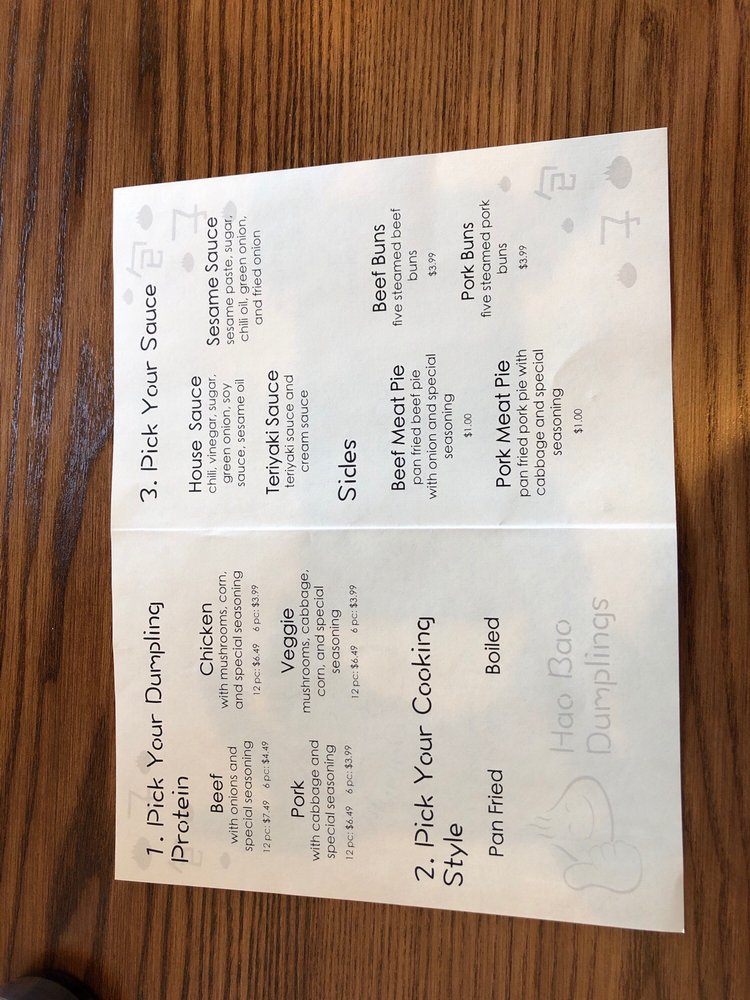 1. Pick Your Dumpling
Protein
Beef
with onions and
special seasoning
12 pc: $7.49 6 pc: $4.49
Chicken
with mushrooms, corn,
and special seasoning
12 pc: $6.49 6 pc: $3.99
Pork
with cabbage and
special seasoning
12 pc: $6.49 6 pc: $3.99
Veggie
mushrooms, cabbage,
corn, and special
seasoning
12 pc: $6.49 6 pc: $3.99
2. Pick Your Cooking
Style
Pan Fried
Boiled
Hao Bao
Dumplings
3. Pick Your Sauce
House Sauce
chili, vinegar, sugar,
green onion, soy
sauce, sesame oil
Sesame Sauce
sesame paste, sugar,
chili oil, green onion,
and fried onion
Teriyaki Sauce
teriyaki sauce and
cream sauce
Sides
Beef Meat Pie
pan fried beef pie
with onion and special
seasoning
$1.00
Beef Buns
five steamed beef
buns
$3.99
Pork Meat Pie
pan fried pork pie with
cabbage and special
seasoning
$1.00
Pork Buns
five steamed pork
buns
$3.99
包
子
包
子